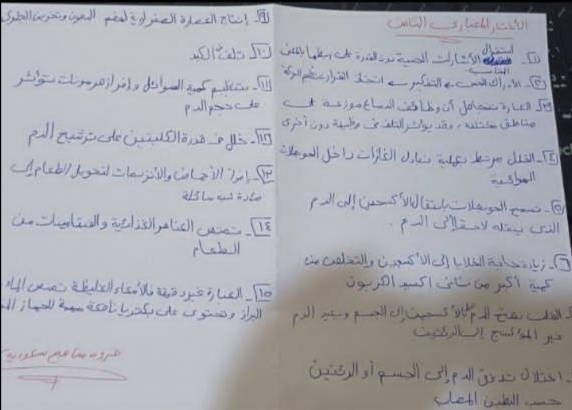 الأختبار المعياري الثامن
استقبال
١- الأشارات الحسية دون القدرة على ربطها بالمعنى
المناسب
٢- الأدراك الحسي - التفكير - اتخاذ القرار - تنظيم الحركة
٣- العبارة تتجاهل أن وظائف الدماغ موزعة على
مناطق مختلفة، وقد يؤثر التلف في وظيفة دون أخرى
٤- الخلل مرتبط بعملية تبادل الغازات داخل الحويصلات
الهوائية
٥- تسمح الحويصلات بانتقال الأكسجين إلى الدم
الذي ينقله لاحقا إلى الدم.
٦- زيادة حاجة الخلايا إلى الأكسجين والتخلص من
كمية أكبر من ثاني اكسيد الكربون
القلب يضخ الدم بالأكسجين إلى الجسم وغير الدم
غير المؤكسج إلى الرئتين
اختلال تدفق الدم إلى الجسم أو الرئتين
حسب البطين المصاب
٩- إنتاج العصارة الصفراوية لهضم الدهون وتخزين الجلوكو
١٠- تلف الكبد
١١- تنظيم كمية السوائل وإفراز هرمونات تؤثر
على حجم الدم
١٢- خلل في قدرة الكليتين على ترشيح الدم
١٣- إفراز الأحماض والأنزيمات لتحويل الطعام إلى
مادة شبه سائلة
١٤- تمتص العناصر الغذائية والفيتامينات من
الطعام
١٥- العبارة غير دقيقة فالأمعاء الغليظة تمتص الماء
البراز وتحتوي على بكتريا نافعة مهمة للجهاز